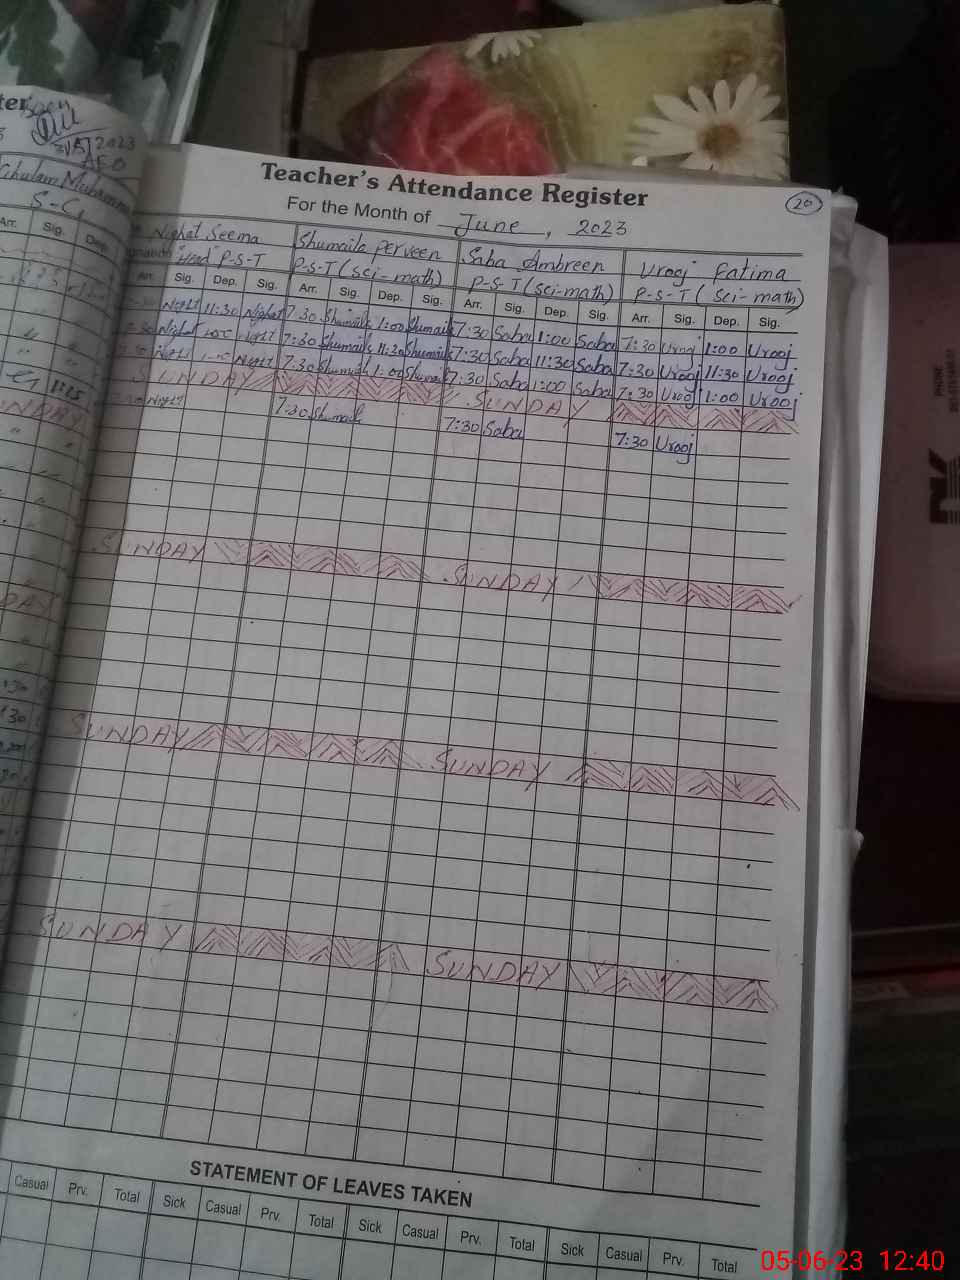 Teacher's Attendance Register
For the Month of June, 2023
20
Nighat Seema Shumaila Perveen Saba Ambreen Urooj Fatima
Head P-S-T P-S-T (sci-math) P-S-T (sci-math) P-S-T (sci-math)
Arr. Sig. Dep. Sig. Arr. Sig. Dep. Sig. Arr. Sig. Dep. Sig. Arr. Sig. Dep. Sig.
11:30 7:30 1:00 7:30 Saba 1:00 Saba 7:30 Urooj 1:00 Urooj
7:30 11:30 7:30 Saba 11:30 Saba 7:30 Urooj 11:30 Urooj
7:30 1:00 7:30 Saba 1:00 Saba 7:30 Urooj 1:00 Urooj
SUNDAY SUNDAY
7:30 7:30 Saba 7:30 Urooj
SUNDAY SUNDAY
SUNDAY SUNDAY
SUNDAY SUNDAY
STATEMENT OF LEAVES TAKEN
Casual Prv. Total Sick Casual Prv. Total Sick Casual Prv. Total Sick Casual Prv. Total
2023
AEO
Arr. Sig. Dep.
PHONE
05-06-23 12:40